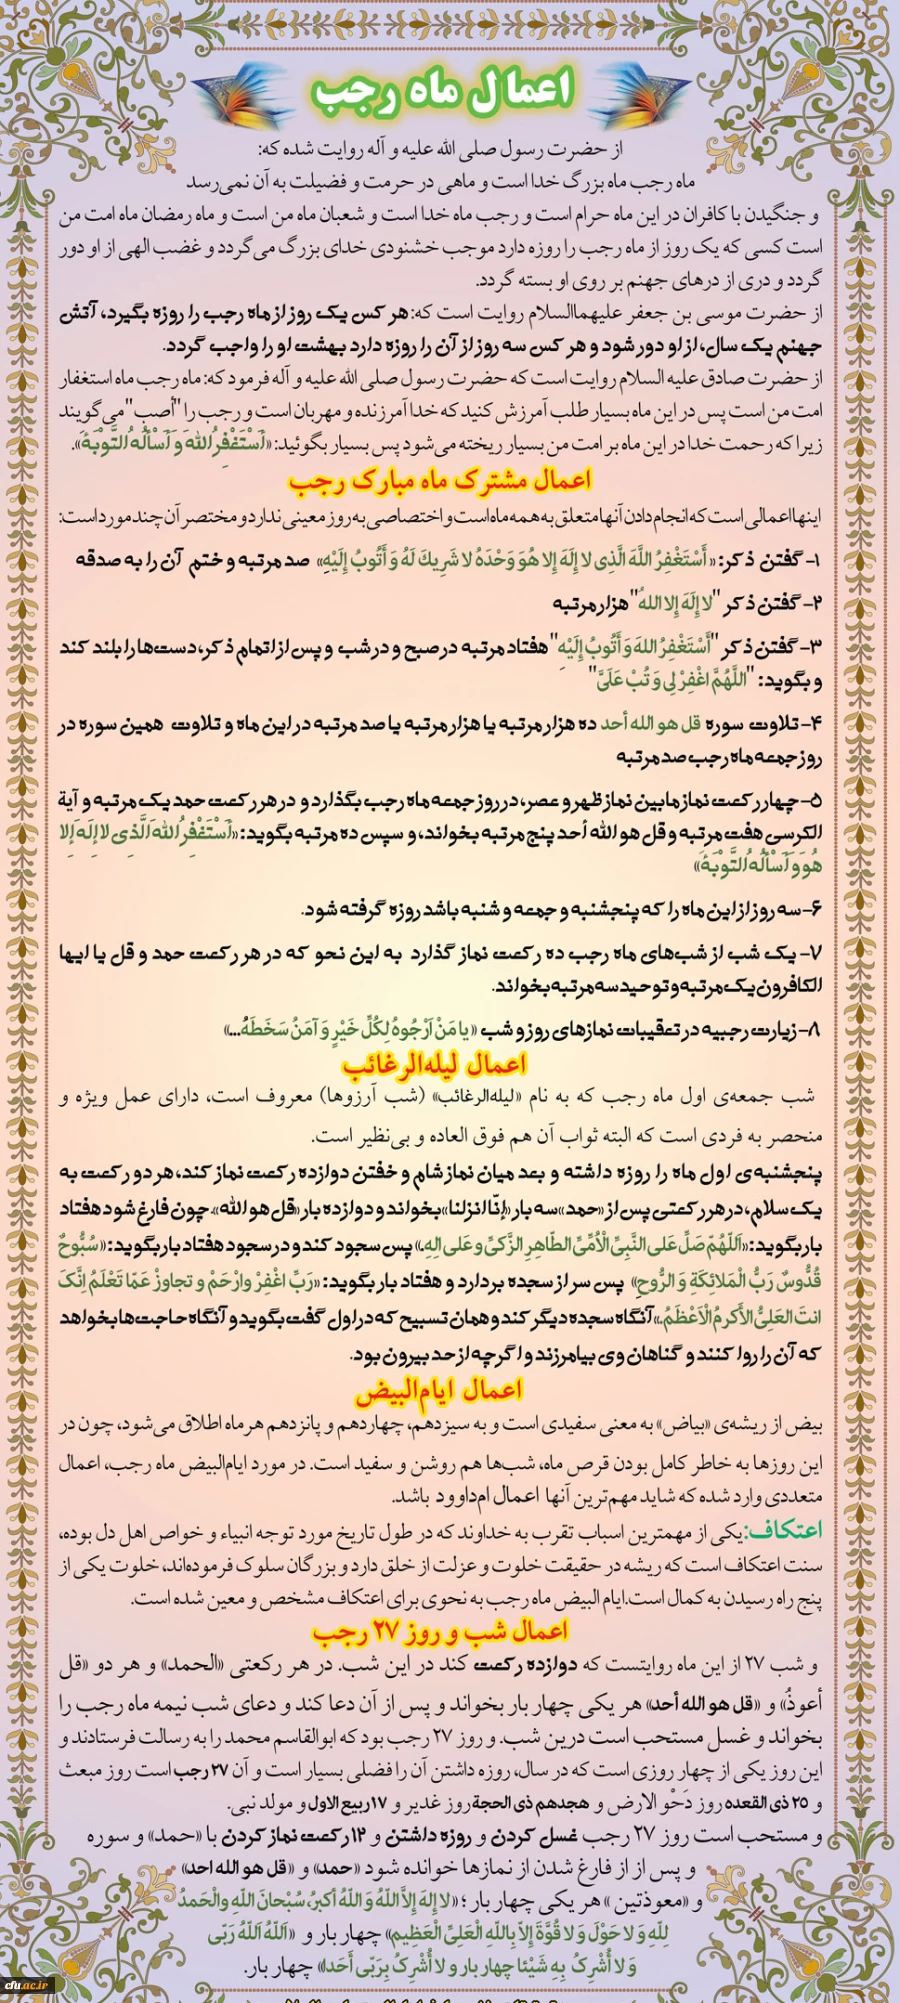 اعمال ماه رجب
از حضرت رسول صلی الله علیه و آله روایت شده که:
ماه رجب ماه بزرگ خدا است و ماهی در حرمت و فضیلت به آن نمی‌رسد
و جنگیدن با کافران در این ماه حرام است و رجب ماه خدا است و شعبان ماه من است و ماه رمضان ماه امت من
است کسی که یک روز از ماه رجب را روزه دارد موجب خشنودی خدای بزرگ می‌گردد و غضب الهی از او دور
گردد و دری از درهای جهنم بر روی او بسته گردد.
از حضرت موسی بن جعفر علیهماالسلام روایت است که: هر کس یک روز از ماه رجب را روزه بگیرد، آتش
جهنم یک سال، از او دور شود و هر کس سه روز از آن را روزه دارد بهشت او را واجب گردد.
از حضرت صادق علیه السلام روایت است که حضرت رسول صلی الله علیه و آله فرمود که: ماه رجب ماه استغفار
امت من است پس در این ماه بسیار طلب آمرزش کنید که خدا آمرزنده و مهربان است و رجب را "أصب" می‌گویند
زیرا که رحمت خدا در این ماه بر امت من بسیار ریخته می‌شود پس بسیار بگوئید: «أَسْتَغْفِرُ اللهَ وَ أَسْأَلُهُ التَّوْبَةَ».
اعمال مشترک ماه مبارک رجب
اینها اعمالی است که انجام دادن آنها متعلق به همه ماه است و اختصاصی به روز معینی ندارد و مختصر آن چند مورد است:
۱- گفتن ذکر: « أَسْتَغْفِرُ اللَّهَ الَّذِی لا إِلَهَ إِلا هُوَ وَحْدَهُ لا شَرِیكَ لَهُ وَ أَتُوبُ إِلَیْهِ» صد مرتبه و ختم آن را به صدقه
۲- گفتن ذکر "لا إِلَهَ إِلا اللهُ" هزار مرتبه
۳- گفتن ذکر "أَسْتَغْفِرُ اللهَ وَ أَتُوبُ إِلَیْهِ" هفتاد مرتبه در صبح و در شب و پس از اتمام ذکر، دست‌ها را بلند کند
و بگوید: "اللَّهُمَّ اغْفِرْ لِی وَ تُبْ عَلَیَّ"
۴- تلاوت سوره قل هو الله أحد ده هزار مرتبه یا هزار مرتبه یا صد مرتبه در این ماه و تلاوت همین سوره در
روز جمعه ماه رجب صد مرتبه
۵- چهار رکعت نماز مابین نماز ظهر و عصر، در روز جمعه ماه رجب بگذارد و در هر رکعت حمد یک مرتبه و آیة
الکرسی هفت مرتبه و قل هو الله أحد پنج مرتبه بخواند، و سپس ده مرتبه بگوید: «أَسْتَغْفِرُ اللهَ الَّذِی لا إِلَهَ إِلا
هُوَ وَ أَسْأَلُهُ التَّوْبَةَ»
۶- سه روز از این ماه را که پنجشنبه و جمعه و شنبه باشد روزه گرفته شود.
۷- یک شب از شب‌های ماه رجب ده رکعت نماز گذارد به این نحو که در هر رکعت حمد و قل یا ایها
الکافرون یک مرتبه و توحید سه مرتبه بخواند.
۸- زیارت رجبیه در تعقیبات نمازهای روز و شب «یا مَنْ أَرْجُوهُ لِکُلِّ خَیْرٍ وَ آمَنُ سَخَطَهُ...»
اعمال لیله‌الرغائب
شب جمعه‌ی اول ماه رجب که به نام «لیله‌الرغائب» (شب آرزوها) معروف است، دارای عمل ویژه و
منحصر به فردی است که البته ثواب آن هم فوق العاده و بی‌نظیر است.
پنجشنبه‌ی اول ماه را روزه داشته و بعد میان نماز شام و خفتن دوازده رکعت نماز کند، هر دو رکعت به
یک سلام، در هر رکعتی پس از «حمد» سه بار «إنّا انزلنا» بخواند و دوازده بار «قل هو الله». چون فارغ شود هفتاد
بار بگوید: «اَللّهُمّ صَلِّ عَلی النَّبِیِّ الْاُمِّیِّ الطّاهِرِ الزَّکیِّ وَ عَلی الِهِ.» پس سجود کند و در سجود هفتاد بار بگوید: «سُبُّوحٌ
قُدُّوسٌ رَبُّ الْمَلائِکَةِ وَ الرُّوحِ» پس سر از سجده بردارد و هفتاد بار بگوید: «رَبِّ اغْفِرْ وارْحَمْ و تجاوزْ عَمّا تَعْلَمُ اِنَّکَ
انتَ العَلِیُّ الأکرمُ الْاَعْظَمُ.» آنگاه سجده دیگر کند و همان تسبیح که در اول گفت بگوید و آنگاه حاجت‌ها بخواهد
که آن را روا کنند و گناهان وی بیامرزند و اگر چه از حد بیرون بود.
اعمال ایام‌البیض
بیض از ریشه‌ی «بیاض» به معنی سفیدی است و به سیزدهم، چهاردهم و پانزدهم هرماه اطلاق می‌شود، چون در
این روزها به خاطر کامل بودن قرص ماه، شب‌ها هم روشن و سفید است. در مورد ایام‌البیض ماه رجب، اعمال
متعددی وارد شده که شاید مهم‌ترین آنها اعمال ام‌داوود باشد.
اعتکاف: یکی از مهمترین اسباب تقرب به خداوند که در طول تاریخ مورد توجه انبیاء و خواص اهل دل بوده،
سنت اعتکاف است که ریشه در حقیقت خلوت و عزلت از خلق دارد و بزرگان سلوک فرموده‌اند، خلوت یکی از
پنج راه رسیدن به کمال است. ایام البیض ماه رجب به نحوی برای اعتکاف مشخص و معین شده است.
اعمال شب و روز ۲۷ رجب
و شب ۲۷ از این ماه روایتست که دوازده رکعت کند در این شب. در هر رکعتی «الحمد» و هر دو «قل
أعوذُ» و «قل هو الله أحد» هر یکی چهار بار بخواند و پس از آن دعا کند و دعای شب نیمه ماه رجب را
بخواند و غسل مستحب است درین شب. و روز ۲۷ رجب بود که ابوالقاسم محمد را به رسالت فرستادند و
این روز یکی از چهار روزی است که در سال، روزه داشتن آن را فضلی بسیار است و آن ۲۷ رجب است روز مبعث
و ۲۵ ذی القعده روز دَحْو الارض و هجدهم ذی الحجة روز غدیر و ۱۷ ربیع الاول و مولد نبی.
و مستحب است روز ۲۷ رجب غسل کردن و روزه داشتن و ۱۲ رکعت نماز کردن با «حمد» و سوره
و پس از از فارغ شدن از نمازها خوانده شود «حمد» و «قل هو الله احد»
و «معوذتین» هر یکی چهار بار؛ «لا إِلهَ إِلاَّ اللّهُ وَ اللّهُ أکبرُ، سُبْحانَ اللّهِ والْحَمدُ
لِلّهِ وَ لا حَوْلَ وَ لا قُوَّةَ إِلاّ بِاللّهِ الْعَلیِّ الْعَظیمِ» چهار بار و «اَللّهُ اَللّهُ رَبّی
وَ لا أُشْرِکُ بِهِ شَیْئا چهار بار و لا أُشْرِکُ بِرَبّی أَحَدا» چهار بار.
cfu.ac.ir